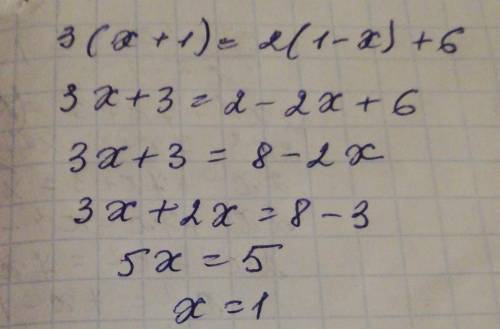 3(x+1)=2(1-x)+6
3x+3=2-2x+6
3x+3=8-2x
3x+2x=8-3
5x=5
x=1